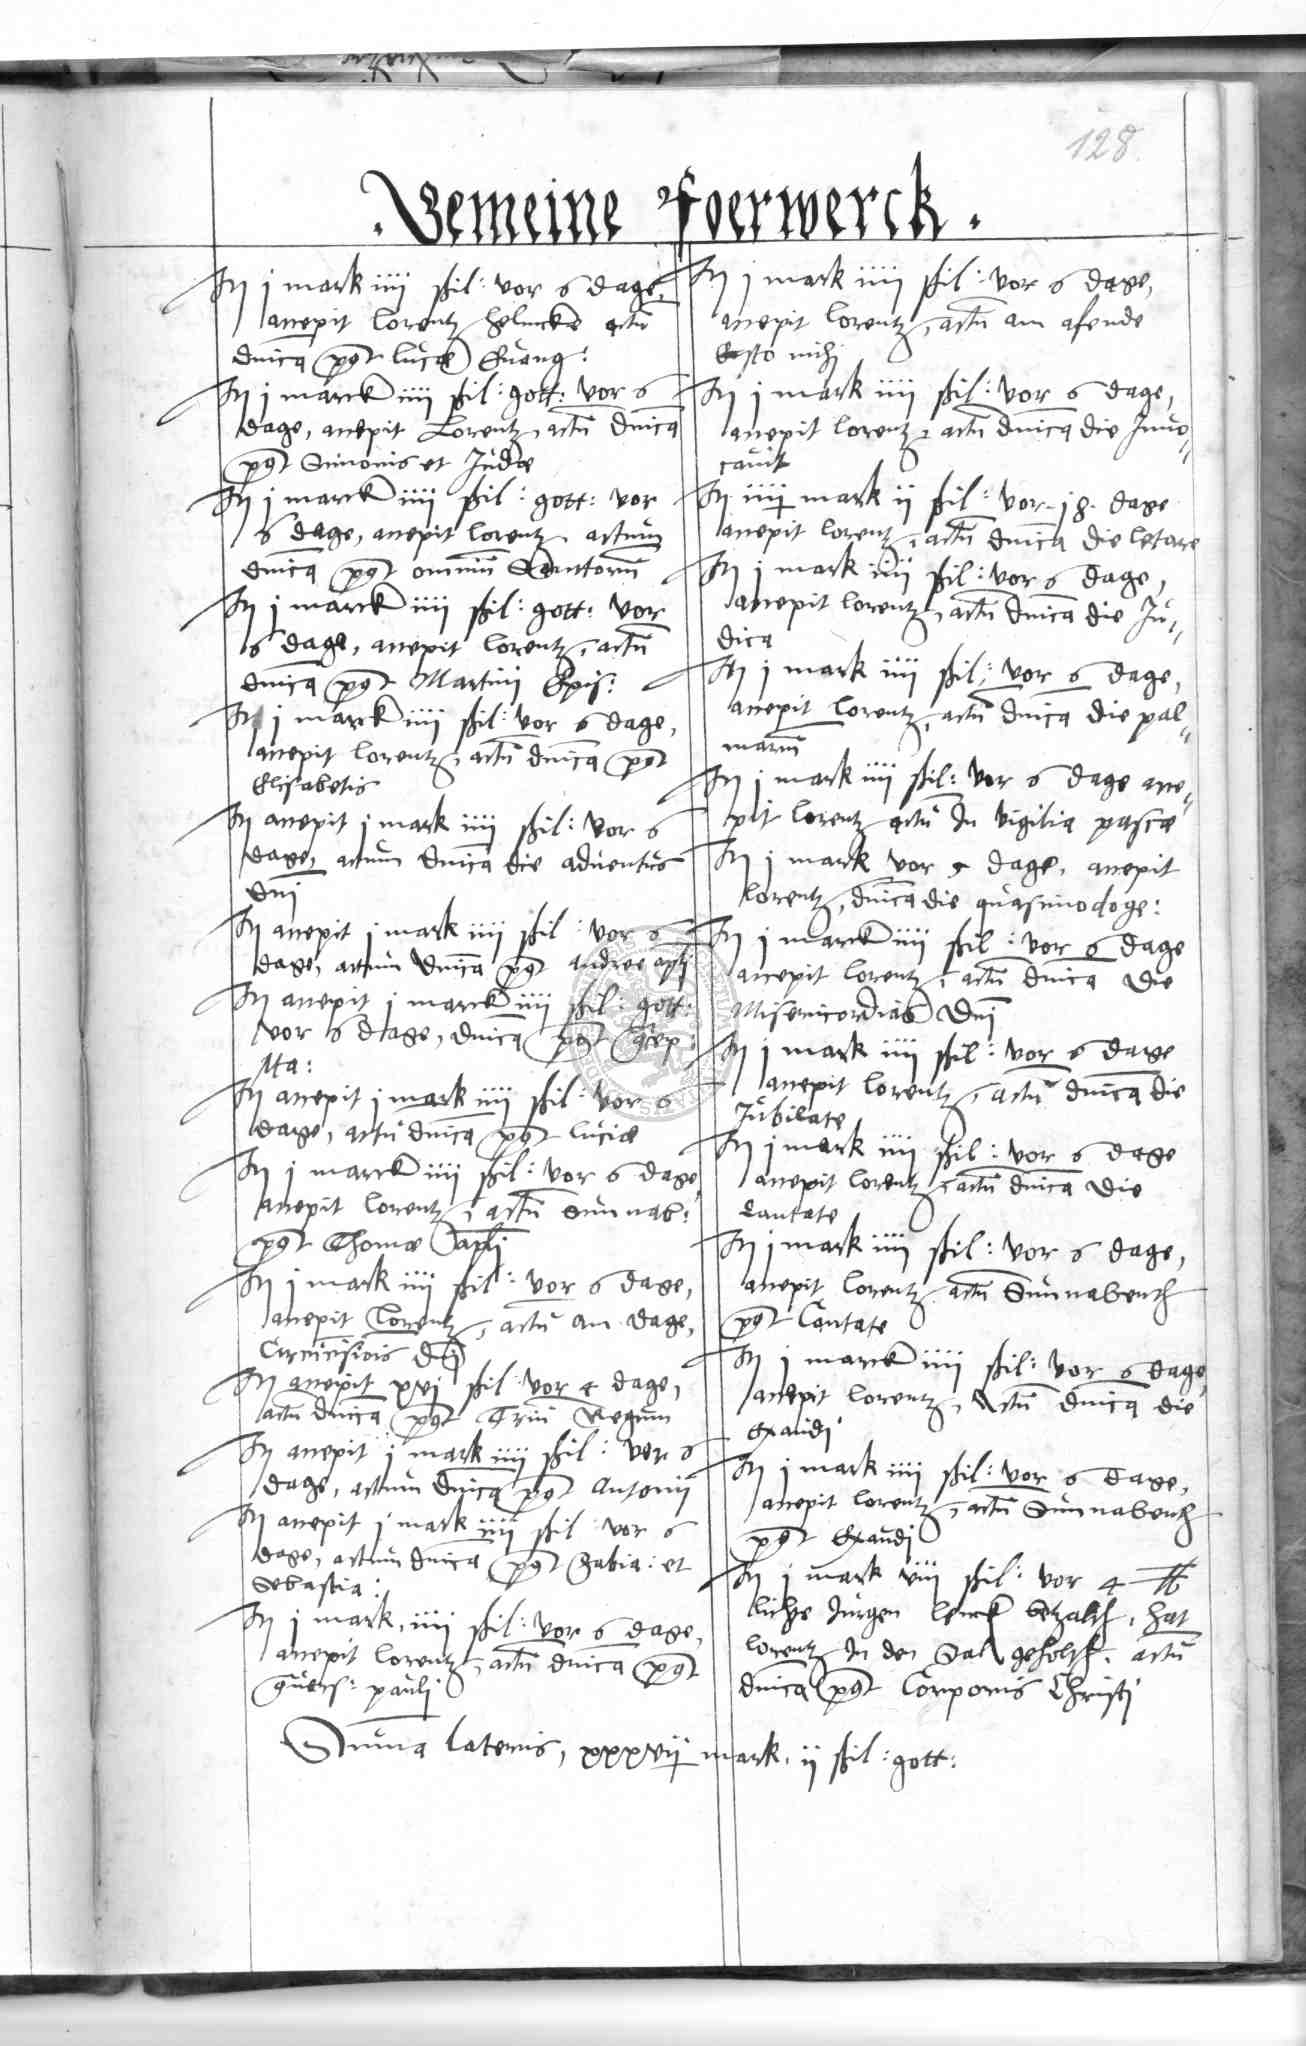 128.
. Gemeine Foerwerck .
It j mark iiij ßil: vor 6 dage,
accepit Lorentz helmcke actū
dnīca pōt luce Euang:
It j marck iiij ßil: gott: vor 6
dage, accepit Lorentz, actū dnīca
pōt Simonis et Jude
It j marck iiij ßil: gott: vor
6 dage, accepit lorentz, actum
dnīca pōt omniū Sanctorū
It j marck iiij ßil: gott: vor
6 dage, accepit lorentz, actū
dnīca pōt Martinj Epis:
It j marck iiij ßil: vor 6 dage,
accepit lorentz, actū dnīca pōt
Elisabetis
It accepit j mark iiij ßil: vor 6
dage, actum dnīca die aduentus
dnī
It accepit j mark iiij ßil: vor 6
dage, actum dnīca pōt Andree apli
It accepit j marck iiij ßil: gott:
vor 6 dage, dnīca pōt Cōcep:
Ma:
It accepit j mark iiij ßil: vor 6
dage, actū dnīca pōt lucie
It j marck iiij ßil: vor 6 dage
accepit lorentz, actū Sunnab:
pōt Thome apli
It j mark iiij ßil: vor 6 dage,
accepit Lorentz, actū am dage,
Circūcisiōis dnī
It accepit xvj ßil: vor 4 dage,
actū dnīca pōt Triū Regum
It accepit j mark iiij ßil: vor 6
dage, actum dnīca pōt Antonij
It accepit j mark iiij ßil: vor 6
dage, actum dnīca pōt Fabia: et
Sebastia:
It j mark, iiij ßil: vor 6 dage,
accepit lorentz, actū dnīca pōt
cōuers: paulj
It j mark iiij ßil: vor 6 dage,
accepit lorentz, actū am afende
Esto mihj
It j mark iiij ßil: vor 6 dage,
accepit lorentz, actū dnīca die Inuo„
cauit
It iiij mark ij ßil: vor 18. dage
accepit lorentz, actū dnīca die letare
It j mark iiij ßil: vor 6 dage,
accepit lorentz, actū dnīca die Ju„
dica
It j mark iiij ßil: vor 6 dage,
accepit lorentz, actū dnīca die pal„
marū
It j mark iiij ßil: vor 6 dage acce„
pit lorentz actū In vigilia pasce
It j mark vor 5 dage, accepit
lorentz, dnīca die quasimodoge:
It j marck iiij ßil: vor 6 dage
accepit lorentz, actū dnīca die
Misericordias Dnī
It j mark iiij ßil: vor 6 dage
accepit lorentz, actū dnīca die
Jubilate
It j mark iiij ßil: vor 6 dage
accepit lorentz, actū dnīca die
Cantate
It j mark iiij ßil: vor 6 dage,
accepit lorentz actū Sunnabenth
pōt Cantate
It j marck iiij ßil: vor 6 dage,
accepit lorentz, Actū dnīca die
Exaudi
It j mark iiij ßil: vor 6 dage,
accepit lorentz, actū Sunnabenth
pōt Exaudj
It j mark viij ßil: vor 4 ℔
lichte Jurgen lenck betzalth, hat
lorentz In den Sal geholth. actū
dnīca pōt Corporis Christi
Suma lateris, xxxvij mark, ij ßil: gott: